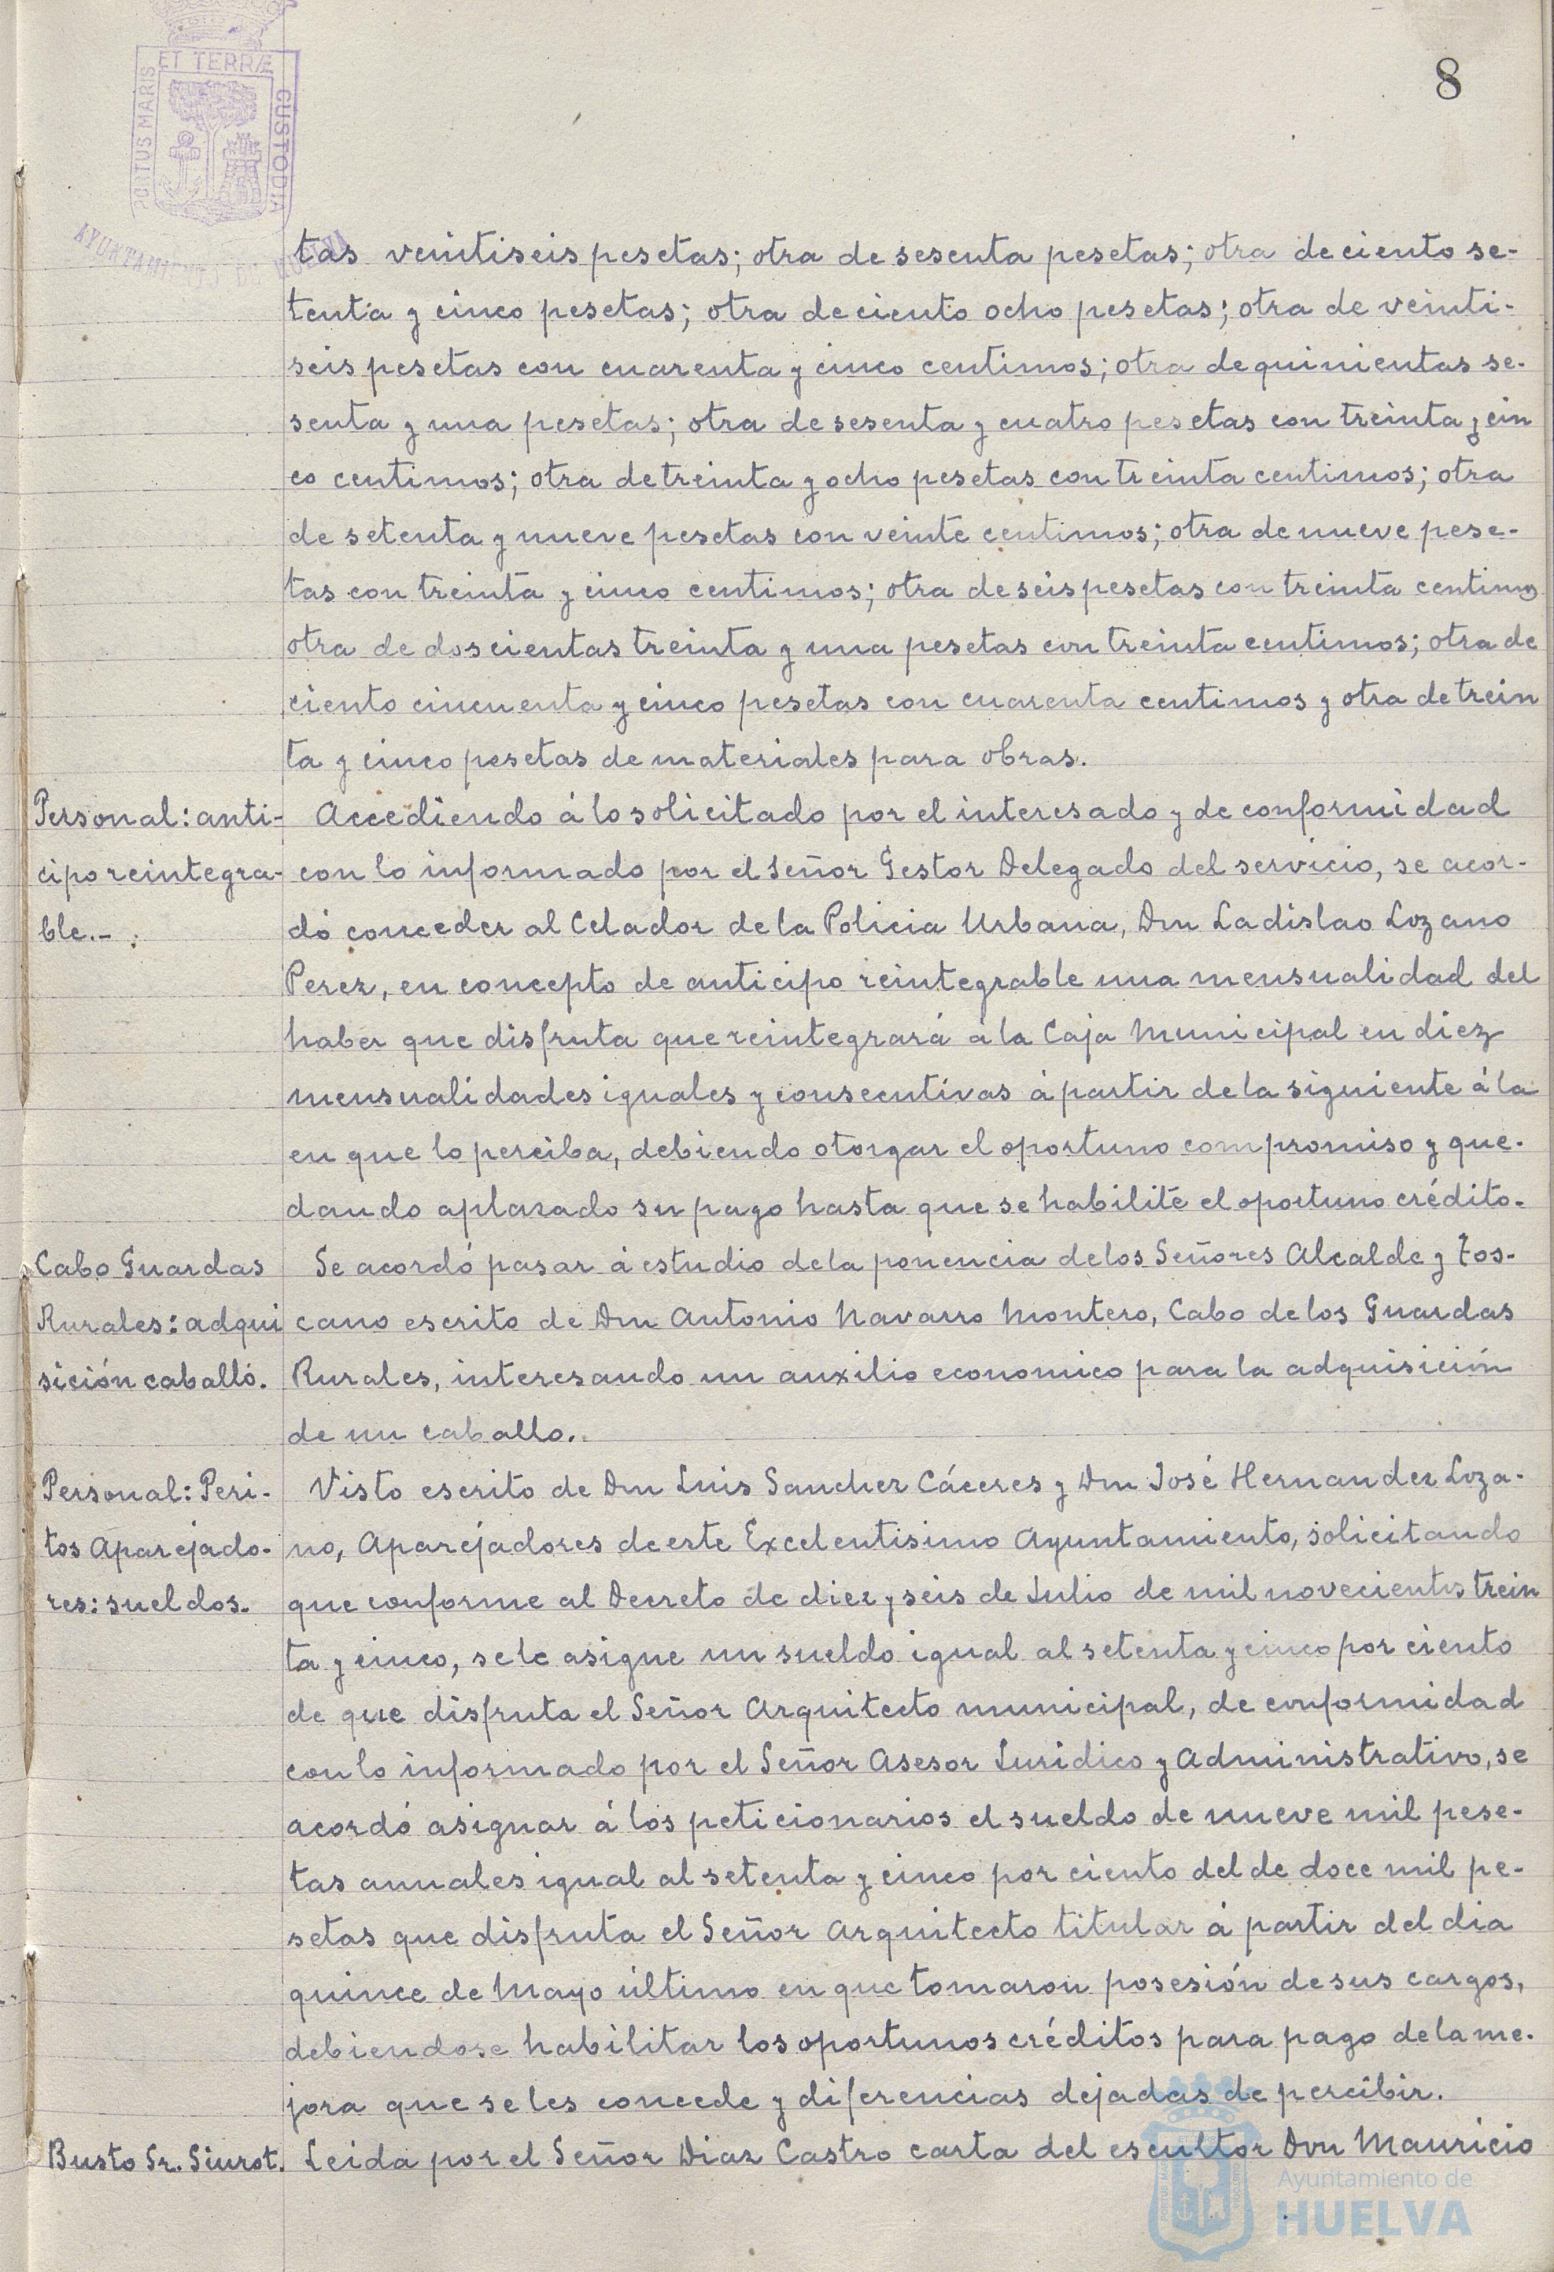 8
ET TERRÆ
PORTUS MARIS
CUSTODIA
AYUNTAMIENTO DE HUELVA
tas veintiseis pesetas; otra de sesenta pesetas; otra de ciento se-
tenta y cinco pesetas; otra de ciento ocho pesetas; otra de veinti-
seis pesetas con cuarenta y cinco centimos; otra de quinientas se-
senta y una pesetas; otra de sesenta y cuatro pesetas con treinta y cin
co centimos; otra de treinta y ocho pesetas con treinta centimos; otra
de setenta y nueve pesetas con veinte centimos; otra de nueve pese-
tas con treinta y cinco centimos; otra de seis pesetas con treinta centimos
otra de doscientas treinta y una pesetas con treinta centimos; otra de
ciento cincuenta y cinco pesetas con cuarenta centimos y otra de trein
ta y cinco pesetas de materiales para obras.
Personal: anti-
cipo reintegra-
ble.-
Accediendo á lo solicitado por el interesado y de conformidad
con lo informado por el Señor Gestor Delegado del servicio, se acor-
dó conceder al Celador de la Policia Urbana, Don Ladislao Lozano
Perez, en concepto de anticipo reintegrable una mensualidad del
haber que disfruta que reintegrará á la Caja Municipal en diez
mensualidades iguales y consecutivas á partir de la siguiente á la
en que lo perciba, debiendo otorgar el oportuno compromiso y que-
dando aplazado su pago hasta que se habilite el oportuno crédito.
Cabo Guardas
Rurales: adqui
sición caballo.
Se acordó pasar á estudio de la ponencia de los Señores Alcalde y Tos-
cano escrito de Don Antonio Navarro Montero, Cabo de los Guardas
Rurales, interesando un auxilio economico para la adquisición
de un caballo.
Personal: Peri-
tos Aparejado-
res: sueldos.
Visto escrito de Don Luis Sanchez Cáceres y Don José Hernandez Loza-
no, Aparejadores de este Excelentisimo Ayuntamiento, solicitando
que conforme al Decreto de diez y seis de Julio de mil novecientos trein
ta y cinco, se le asigne un sueldo igual al setenta y cinco por ciento
de que disfruta el Señor Arquitecto municipal, de conformidad
con lo informado por el Señor Asesor Juridico y Administrativo, se
acordó asignar á los peticionarios el sueldo de nueve mil pese-
tas anuales igual al setenta y cinco por ciento del de doce mil pe-
setas que disfruta el Señor Arquitecto titular á partir del dia
quince de Mayo último en que tomaron posesión de sus cargos,
debiendose habilitar los oportunos créditos para pago de la me-
jora que se les concede y diferencias dejadas de percibir.
Busto Sr. Siurot.
Leida por el Señor Diaz Castro carta del escultor Don Mauricio
Ayuntamiento de
HUELVA